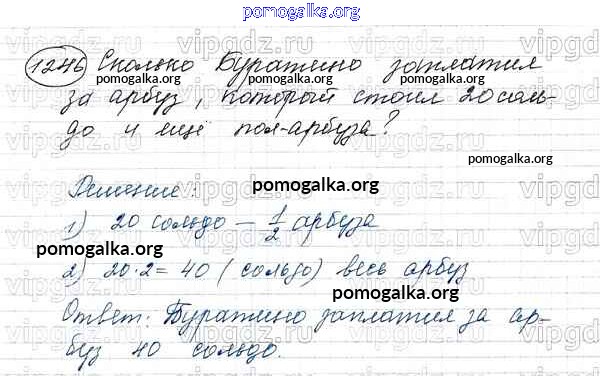 pomogalka.org
1246 Сколько Буратино заплатил
pomogalka.org pomogalka.org
за арбуз, который стоил 20 соль-
до и ещё пол-арбуза?
pomogalka.org
Решение: pomogalka.org
1) 20 сольдо — 1/2 арбуза
pomogalka.org
2) 20·2=40 (сольдо) весь арбуз
pomogalka.org
Ответ: Буратино заплатил за ар-
буз 40 сольдо.
pomogalka.org